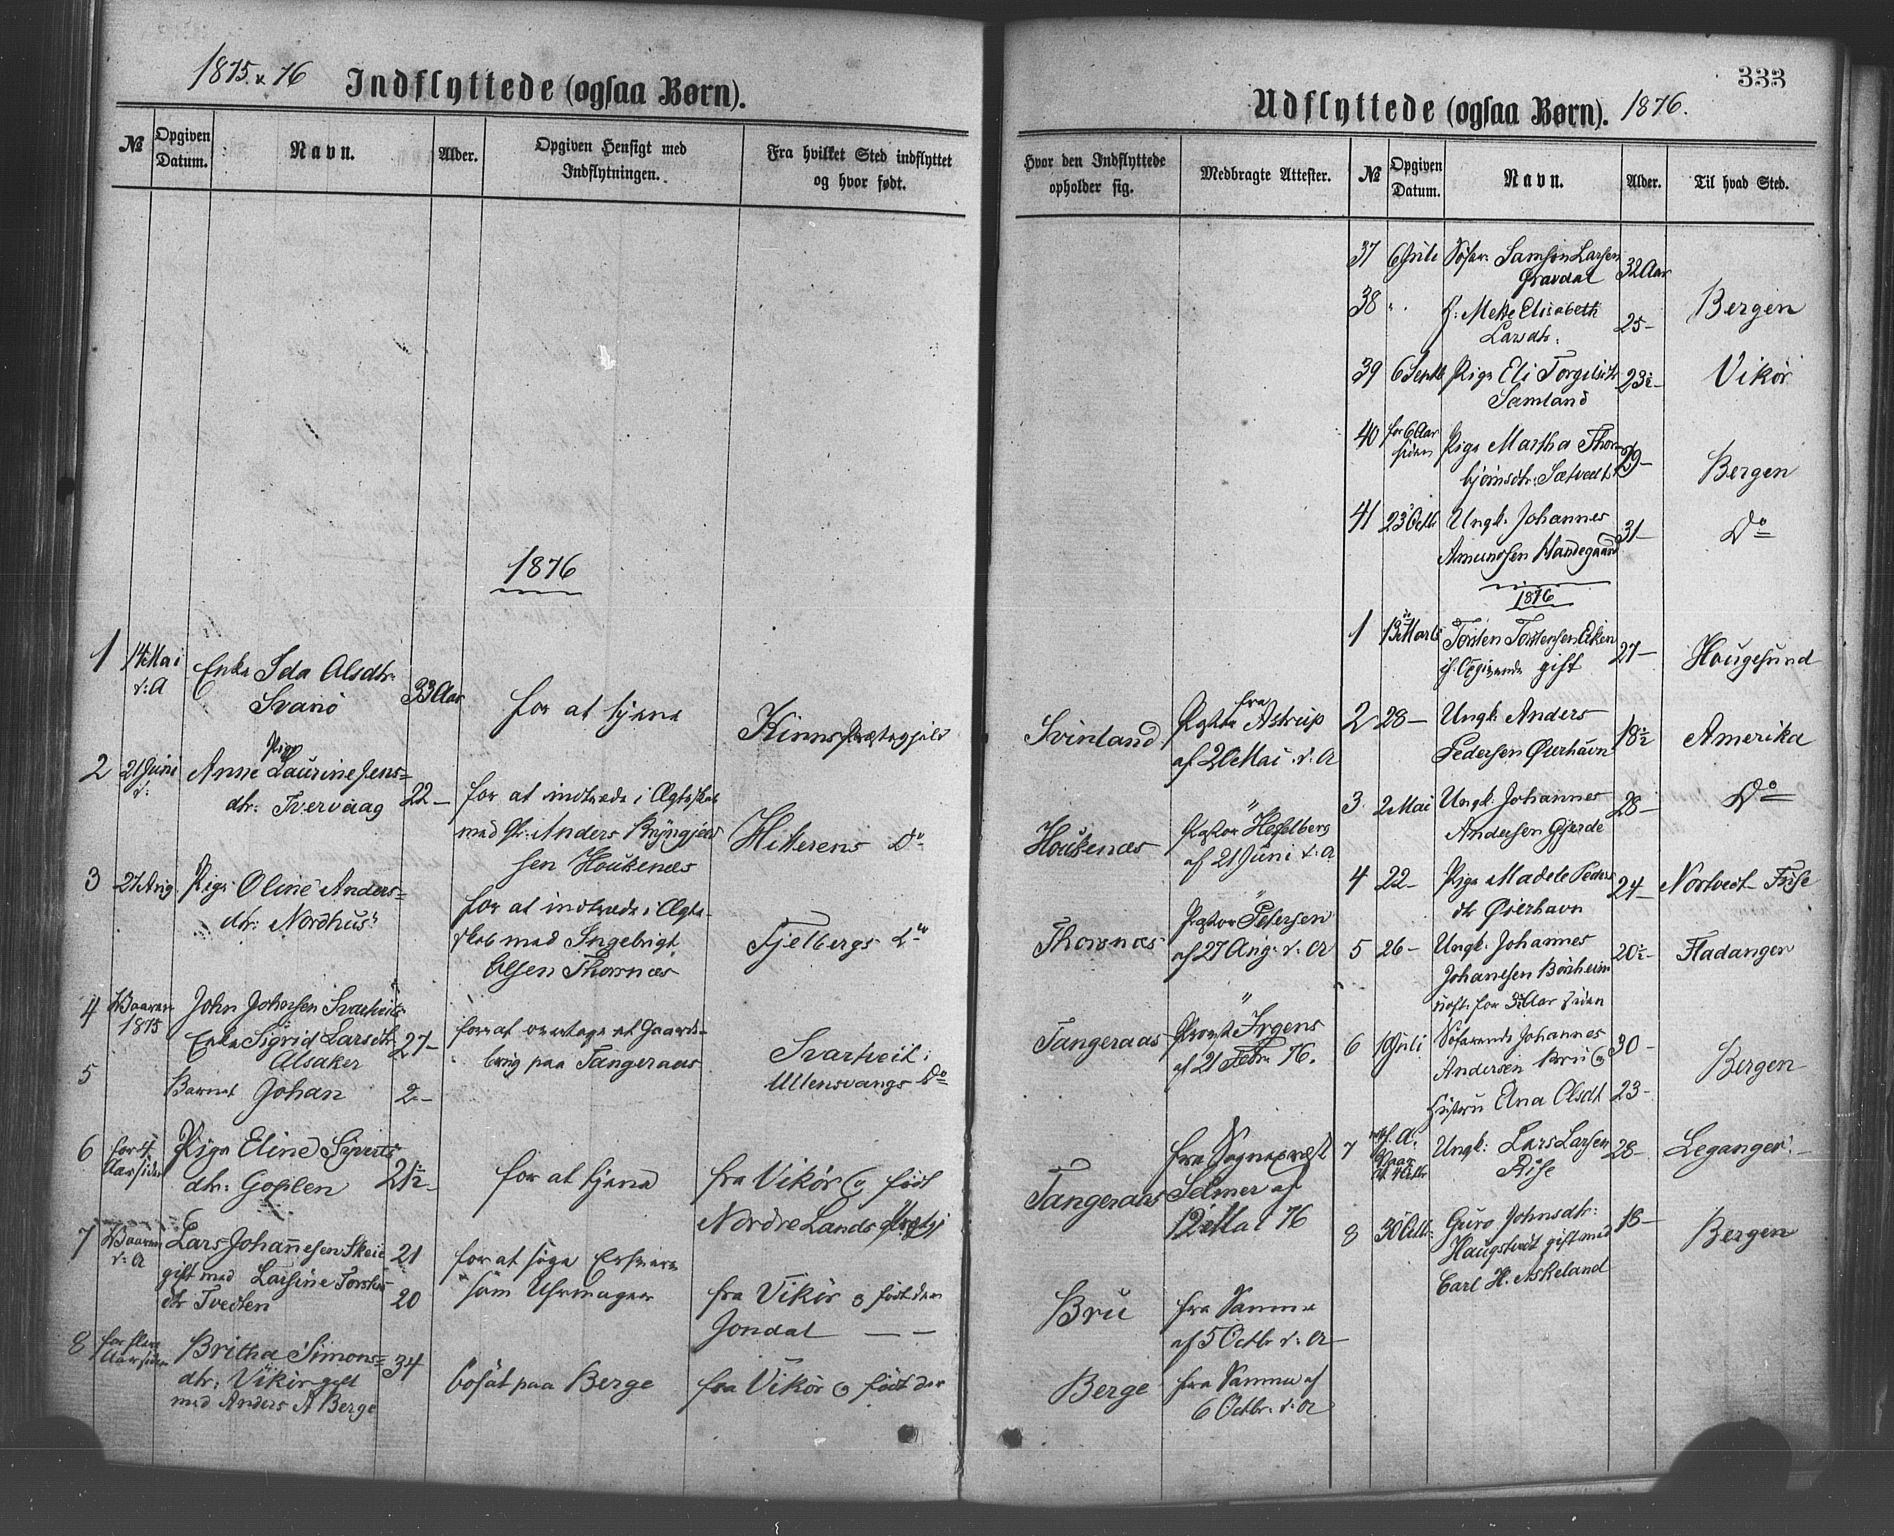 1875 & 76 Indflyttede (ogsaa Børn).
№ Opgiven Datum. Navn. Alder. Opgiven Hensigt med Indflytningen. Fra hvilket Sted indflyttet og hvor født.
1876
1 14 Mai Enke Ida Olsdtr. 33 Aar for at tjene Kinns Præstegjeld
d: A Svanö
2 21 Juni Pige
Anne Laurine Jens= 22 — for at indtræde i Ægteskab
d: dtr: Tvervaag med Anders Bryngjels
sen Houkenæs Hitterens Do
3 27 Aug. Pige Oline Anders= for at indtræde i Ægte-
dtr: Nordhus skab med Ingebrigt Fjelbergs Do
Olsen Thornæs
4 Vaaren John Johnsen Svartveits
1875 Enke Sigrid Larsdtr 27 — for at overtage et Gaards-
Alsaker brug paa Tangeraas Svartveit i
5 Barnet Johan 2 — Ullensvangs Do
6 for 4 Pige Eline Siverts
Aar siden dtr: Goplen 21½ — for at tjene fra Vikör & född
Nordre Lands Præstgj
7 Vaaren Lars Johannesen Skeie 21 for at söge Erhverv
d: A gift med Larsine Torstens
dtr Tvedten 20 som Uhrmager fra Vikör & födt der
Jondal — —
8 for flere Britha Simons= 34
Aar siden dtr: Vikör gift bosat paa Berge fra Vikör & födt der
med Anders A Berge
333
Udflyttede (ogsaa Børn). 1876.
Hvor den Indflyttede opholder sig. Medbragte Attester. № Opgiven Datum. Navn. Alder. Til hvad Sted.
37 6 Juli Söfar. Samson Larsen 32 Aar
Gravdal
38 " . H: Mette Elisabeth 25 — Bergen
Larsdtr.
39 6 Septb Pige Eli Torgilsdtr 23½ — Vikör
Samland
40 for 6 Aar Pige Martha Thor
siden björnsdtr: Sætvedt 29 — Bergen
41 23 Octb Ungk. Johannes 31 — Do
Amundsen Handegaard
1876
1 13 Marts Torsten Torstensen Eiken 27 — Hougesund
gift
Svinland fra Pastor Astrup 2 28 — Ungk: Anders 18½ Amerika
af 20 Mai d: A Pedersen Öierhavn
3 2 Mai Ungk. Johannes 28 — Do
Houkenæs " Pastor Hesselberg Andersen Gjerde
af 21 Juni d: A
4 22 — Pige Madele Peders 24 — Nortvedt
dtr Öierhavn
Thornæs " Pastor Petersen
af 27 Aug. d: A 5 26 — Ungk. Johannes 20½ — Fladanger
Johannesen Börsheim
for 3 Aar siden
Tangeraas " Provst Irgens 6 1 Juli Söfarende Johannes 30 —
af 21 Febr. 76. Andersen Bru & Bergen
Hustru Ana Olsdt 23 —
fra Sogneprest 7 f. A. Vaar Ungk: Lars Larsen 28 — Leganger
Tangeraas Selmer af Rise
12 Mai 76 8 30 Octb: Guro Johnsdtr: 18 — Bergen
Haugstvedt gift med
Carl H. Askeland
Bru fra Samme
af 5 Octbr d: A
Berge fra Samme af
6 Octbr: d: A